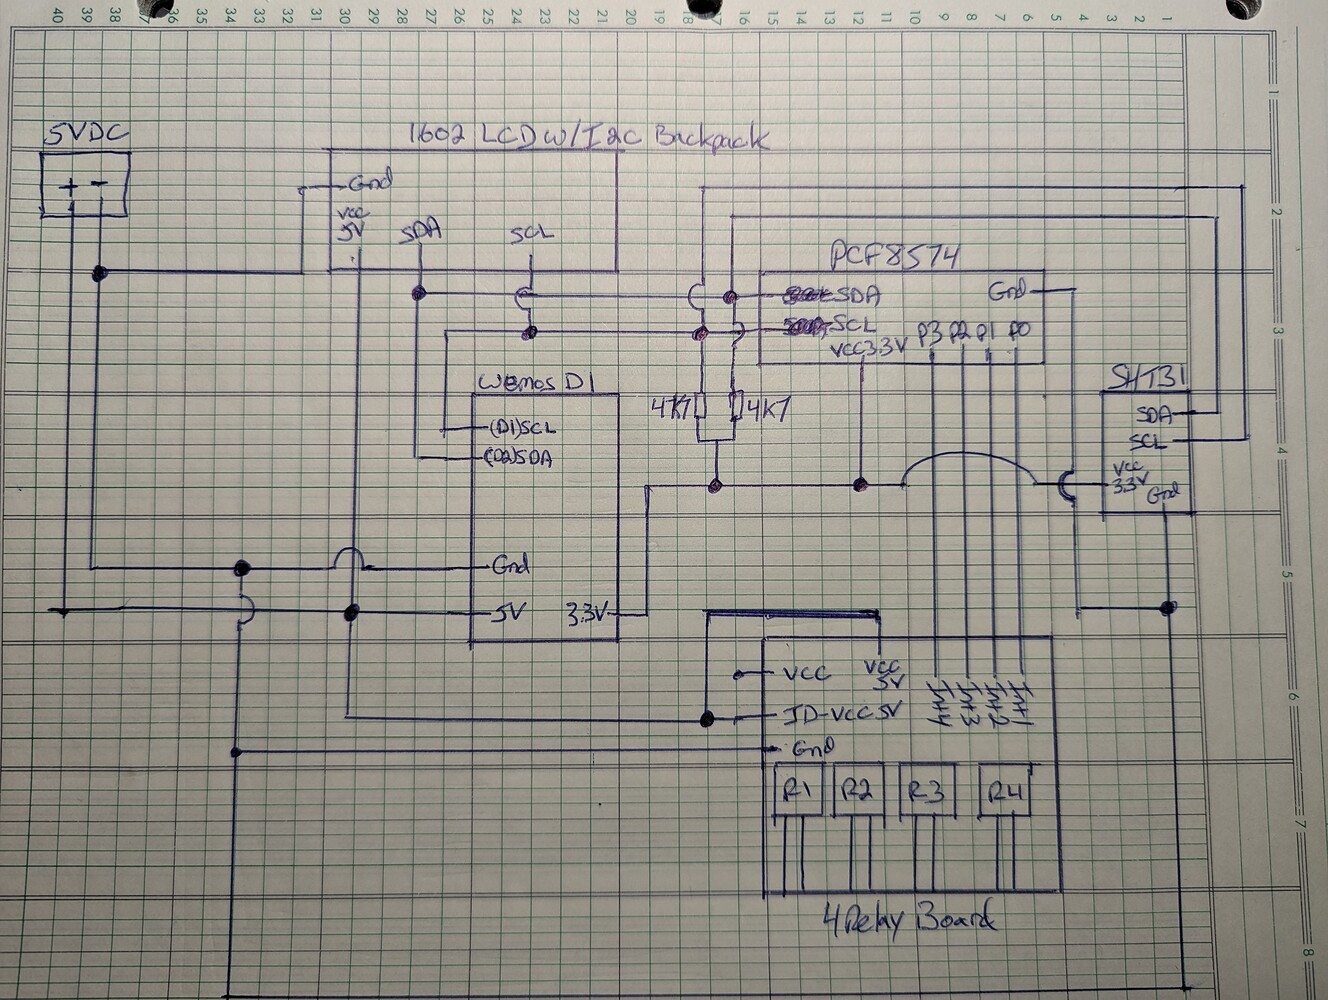 40 39 38 37 36 35 34 33 32 31 30 29 28 27 26 25 24 23 22 21 20 19 18 17 16 15 14 13 12 11 10 9 8 7 6 5 4 3 2 1
1
2
3
4
5
6
7
8
5VDC
+ -
1602 LCD w/I2C Backpack
Gnd
VCC
5V
SDA
SCL
PCF8574
SDA
SCL
VCC3.3V
Gnd
P3 P2 P1 P0
SHT31
SDA
SCL
VCC
3.3V
Gnd
Wemos D1
(D1)SCL
(D2)SDA
Gnd
5V
3.3V
4K7
4K7
VCC
VCC
5V
JD-VCC 5V
Gnd
Int4
Int3
Int2
Int1
R1 R2 R3 R4
4 Relay Board